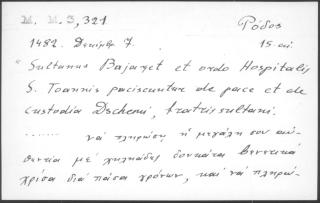 M. M. 3, 321
Ρόδος
1482. Δεκεμβρ. 7.
15 αι.
"Sultanus Bajazet et ordo Hospitalis
S. Joannis paciscuntur de pace et de
custodia Dschemi, fratris sultani.
....... νά πληρώση ἡ μεγάλη σου αὐ-
θεντία μέ χιλιάδες δουκάτα βενετικά
χρίσα διά πάσα χρόνων, καί νά πληρώ-